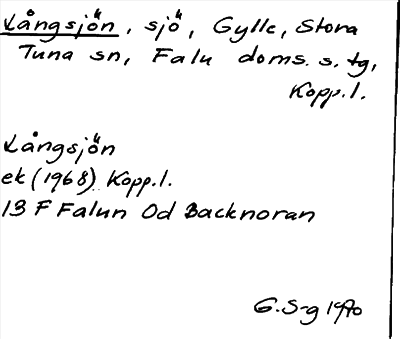 Långsjön, sjö, Gylle, Stora
Tuna sn, Falu doms. s. tg,
Kopp.l.
Långsjön
ek (1968) Kopp.l.
13 F Falun 0d Backnoran
G.S-g 1970